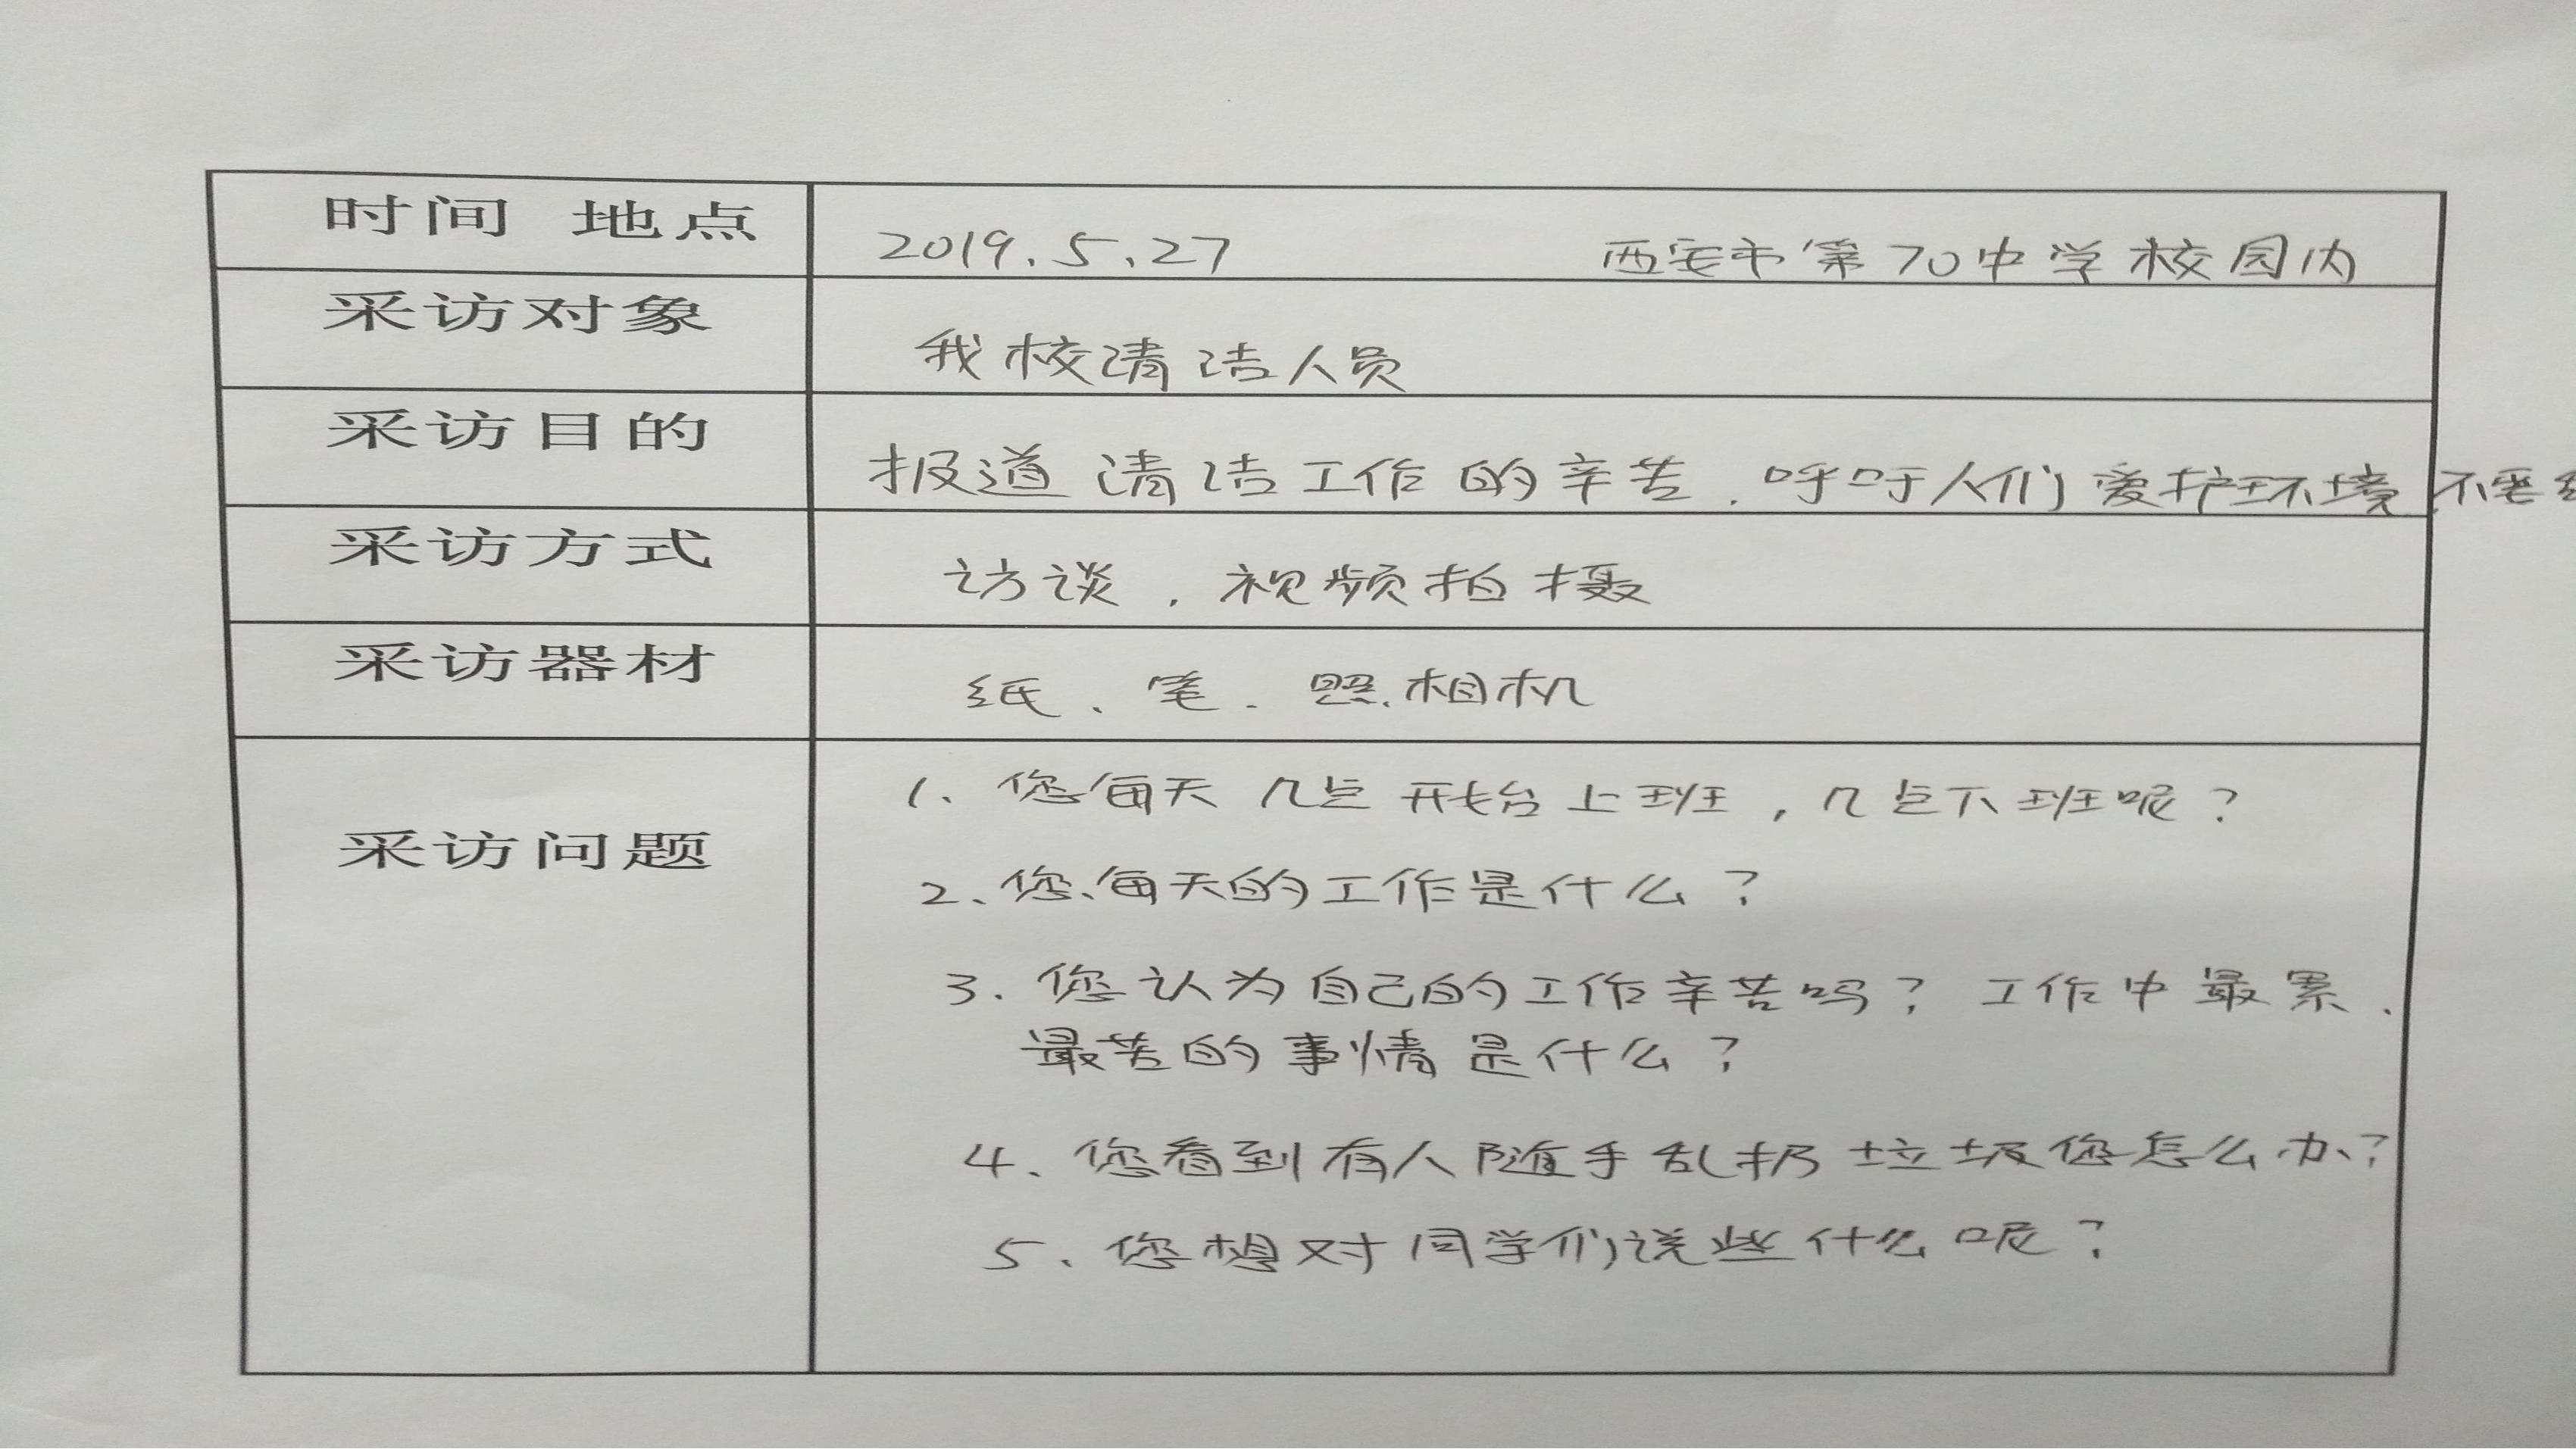 时间 地点 2019.5.27 西安市第70中学校园内
采访对象 我校清洁人员
采访目的 报道清洁工作的辛苦,呼吁人们爱护环境,不要
采访方式 访谈,视频拍摄
采访器材 纸、笔、照相机
采访问题
1、您每天几点开始上班,几点下班呢?
2、您每天的工作是什么?
3.您认为自己的工作辛苦吗?工作中最累、
最苦的事情是什么?
4、您看到有人随手乱扔垃圾您怎么办?
5、您想对同学们说些什么呢?